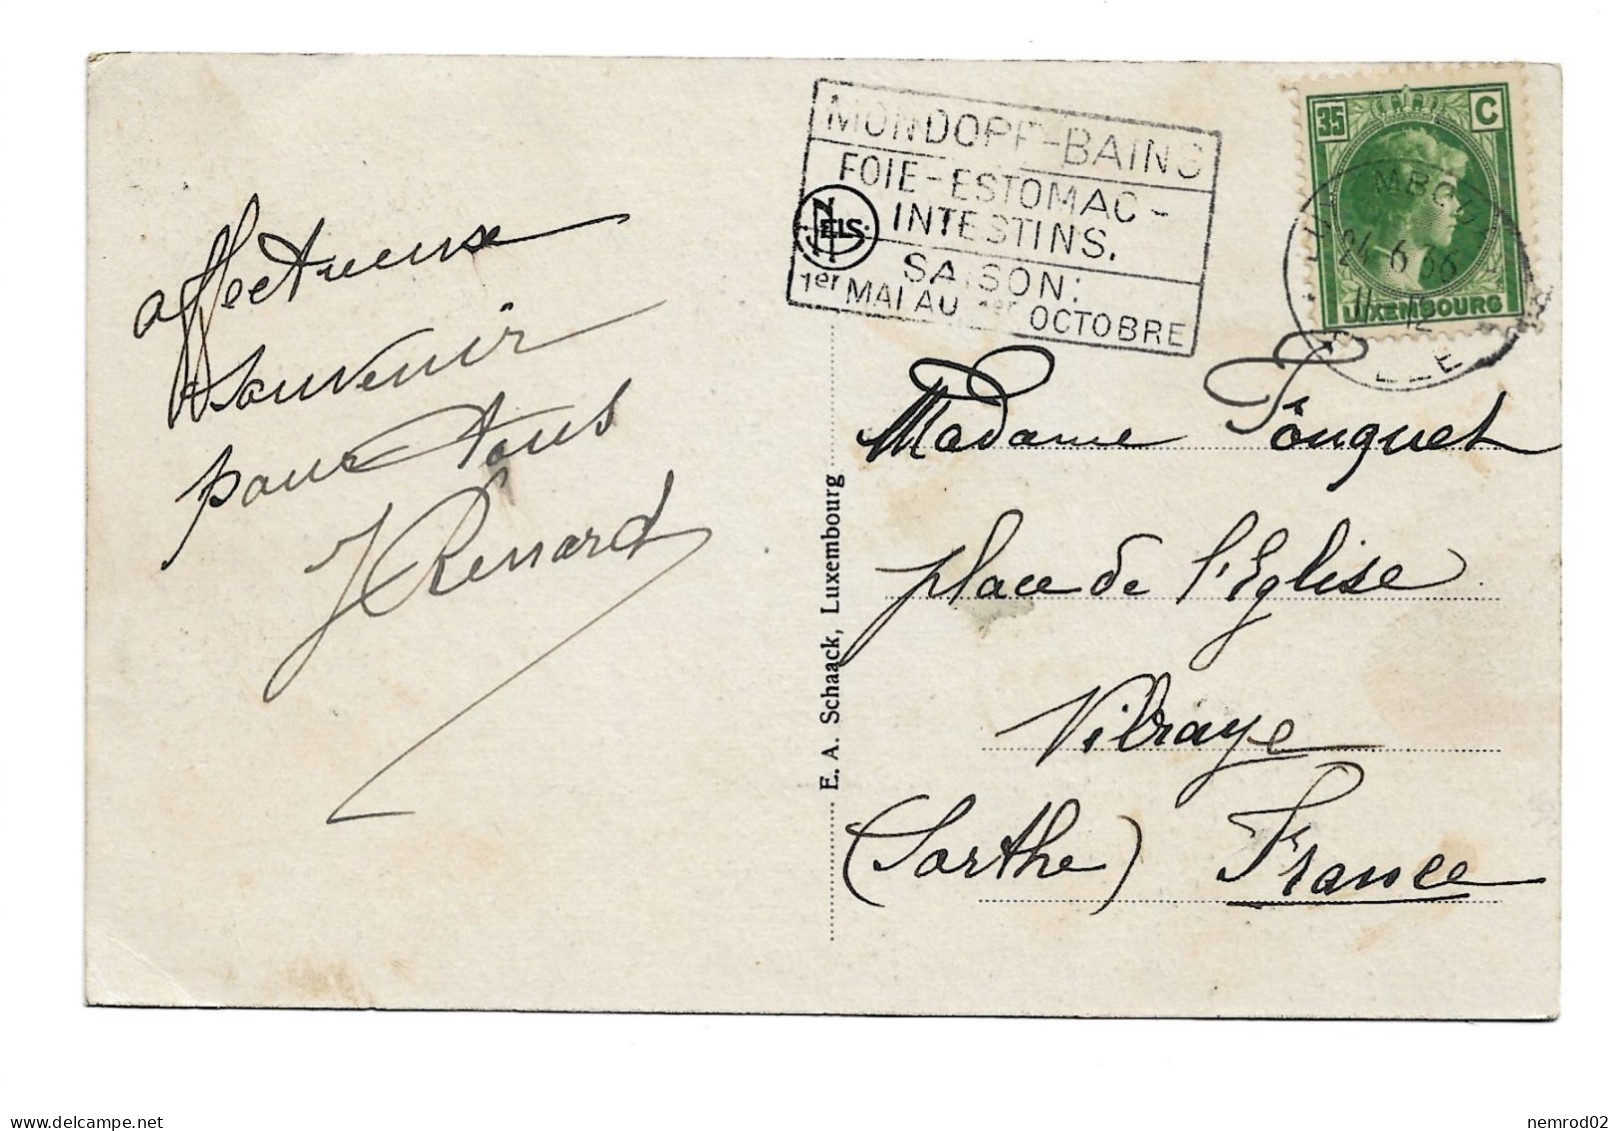 affectueux
souvenir
pour tous
J Renard
MONDORF-BAINS
FOIE-ESTOMAC-
INTESTINS.
SAISON:
1er MAI AU 1er OCTOBRE
NELS
35 C
LUXEMBOURG
24 6 36
VILLE
LUXEMBOURG
E. A. Schaack, Luxembourg
Madame Fouquet
place de l'Eglise
Vibraye
(Sarthe) France
nemrod02